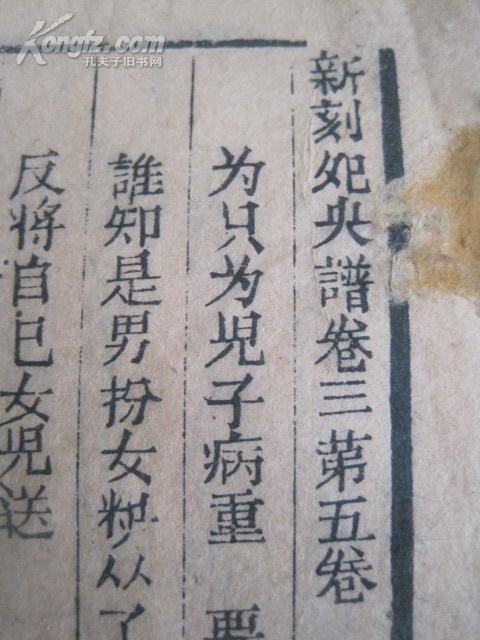 Kongfz.com
孔夫子旧书网
新刻妃央譜卷三第五卷
为只为児子病重 要
誰知是男扮女粧从了
反将自已女児送